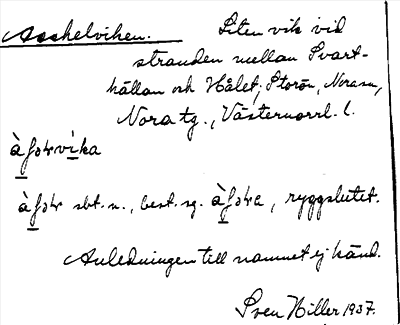 Asshelviken. Liten vik vid
stranden mellan Svart-
hällan och Hålet, Storön, Norasn,
Nora tg., Västernorrl. l.
sbt. n., best. sg. , ryggslutet.
Anledningen till namnet ej känd.
Sven Hiller 1937.